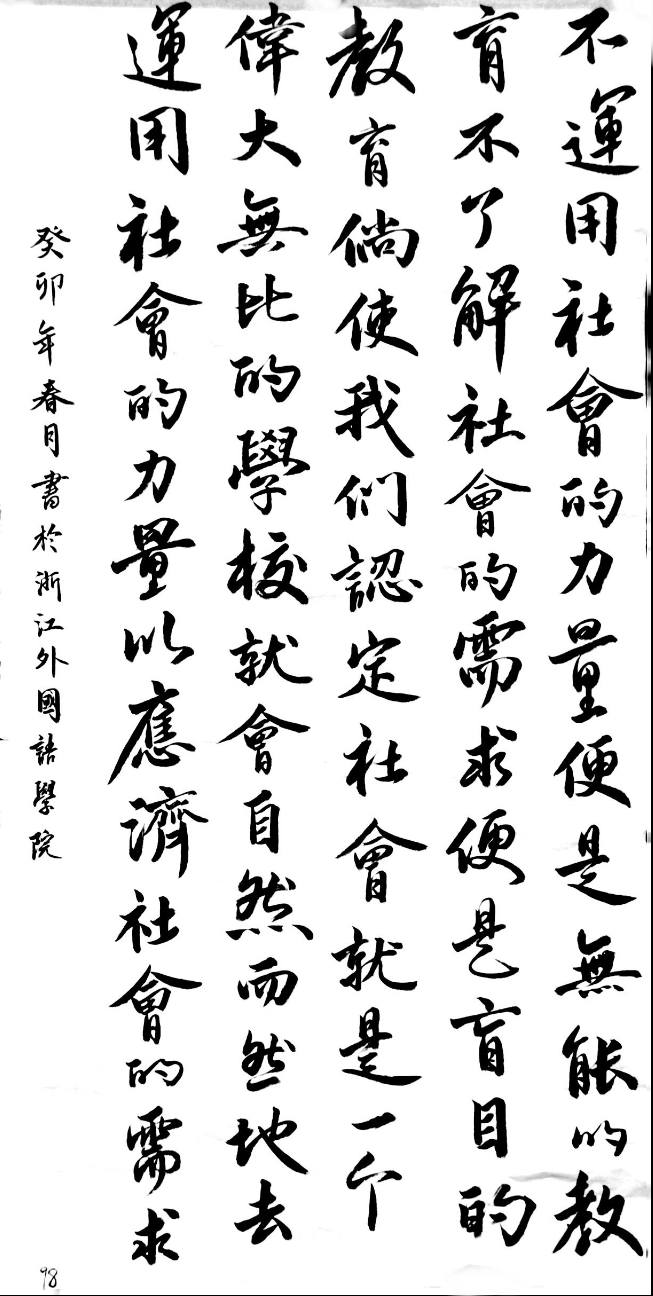 不運用社會的力量便是無能的教
育不了解社會的需求便是盲目的
教育倘使我們認定社會就是一个
偉大無比的學校就會自然而然地去
運用社會的力量以應濟社會的需求
癸卯年春月書於浙江外國語學院
98